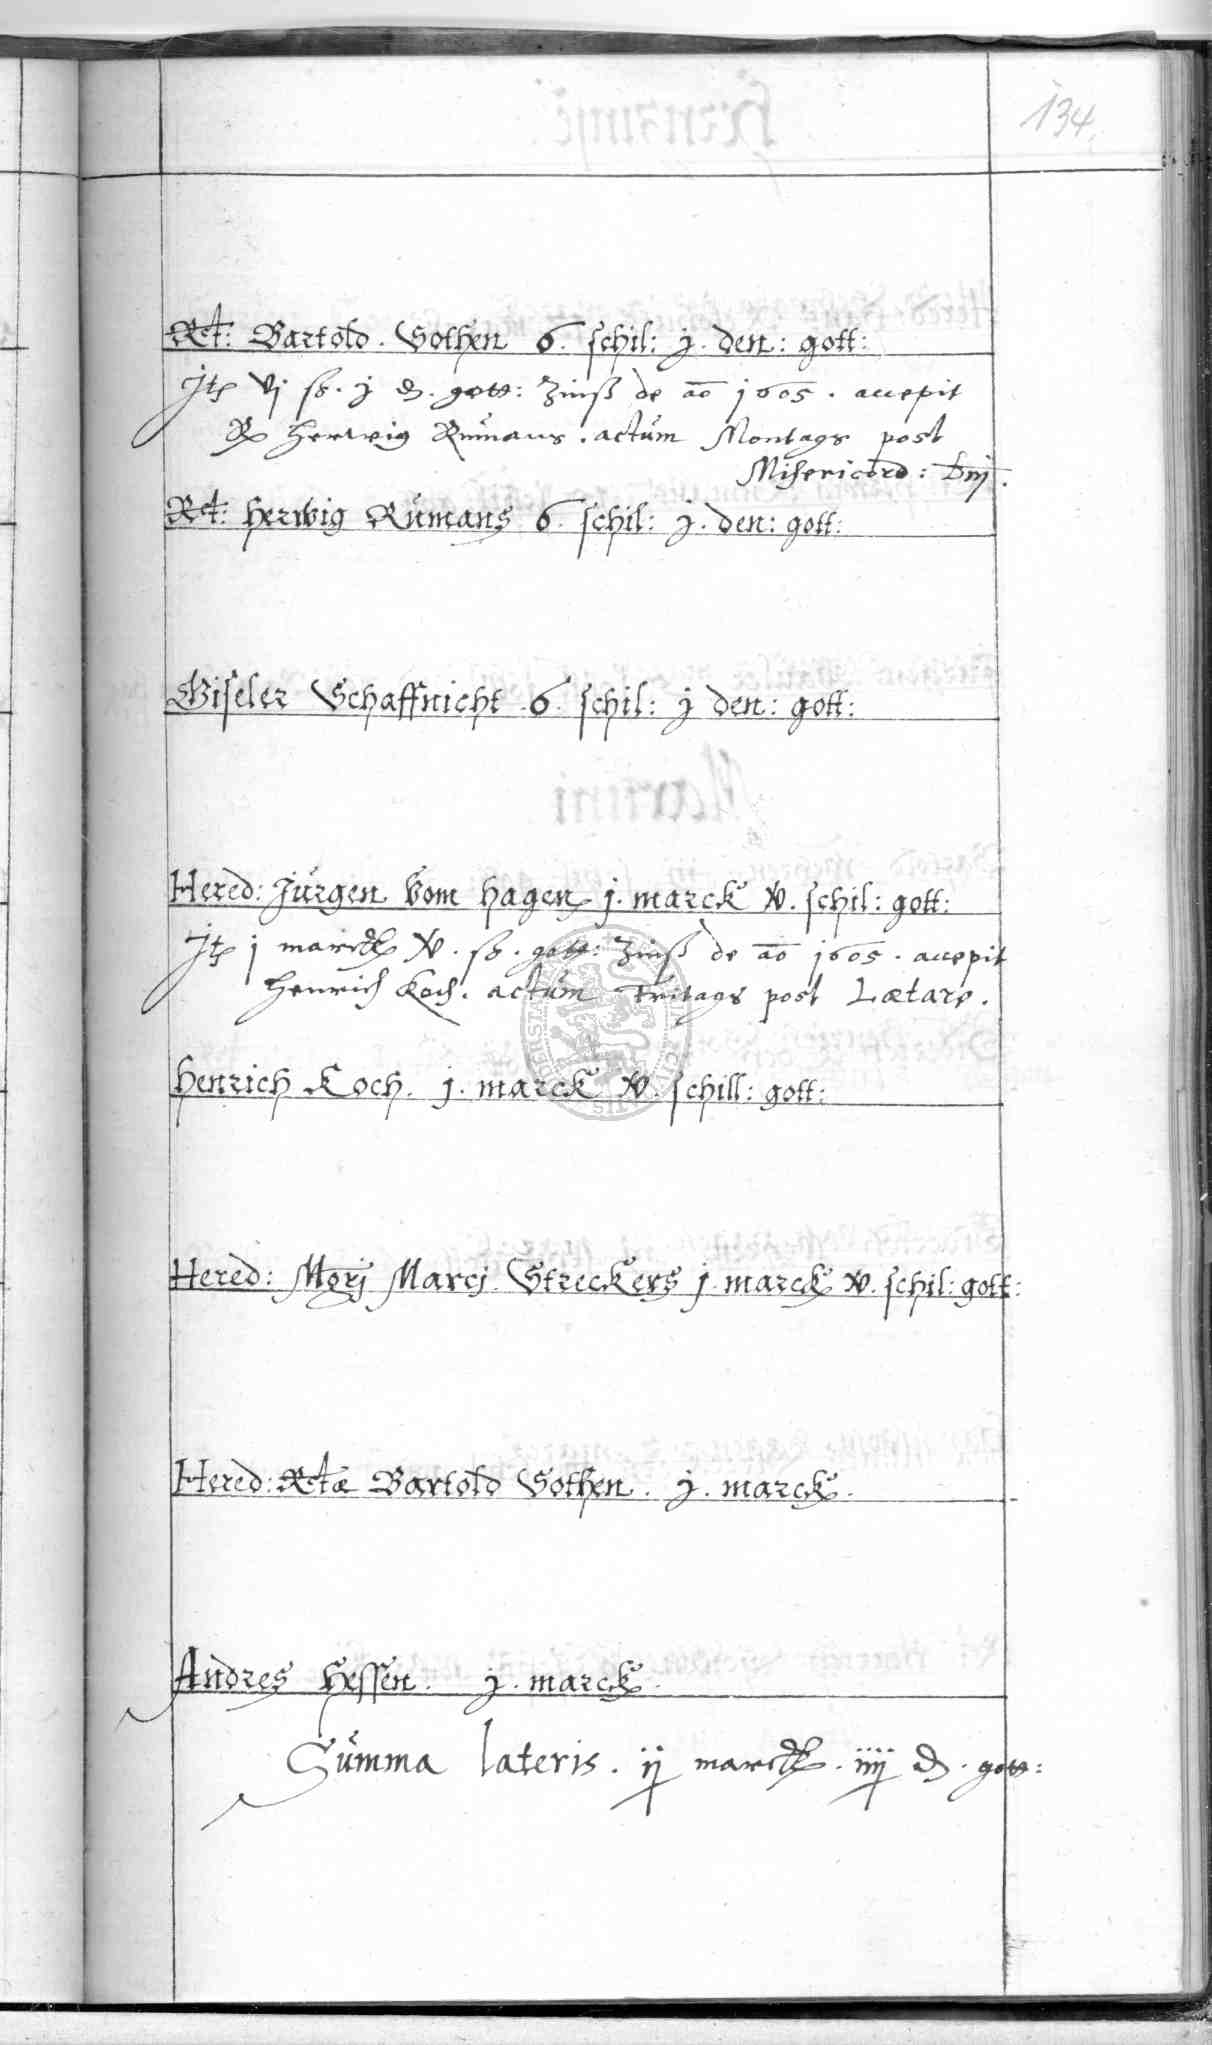 134.
Rct: Bartold. Sothen 6. schil: j. den: gott:
Jtē vj ß. j ₰. gott: Zinß de aō 1605. accepit
Herwig Rümans. actum Montags post
Misericord: Dnj.
Rct: Herwig Rümans 6. schil: j. den: gott:
Giseler Schaffnicht 6. schil: j den: gott:
Hered: Jürgen vom Hagen j. marck xv. schil: gott:
Jtē j marck xv. ß. gott: Zinß de aō 1605. accepit
Henrich Koch. actum Fritags post Lætare.
Henrich Koch. j. marck xv. schill: gott:
Hered: Mgrj Marcj. Streckers j. marck xv. schil: gott:
Hered: Rctæ Bartold Sothen. j. marck.
Andres Hessen. j. marck.
Sümma lateris. ij marck. iiij ₰. gott: